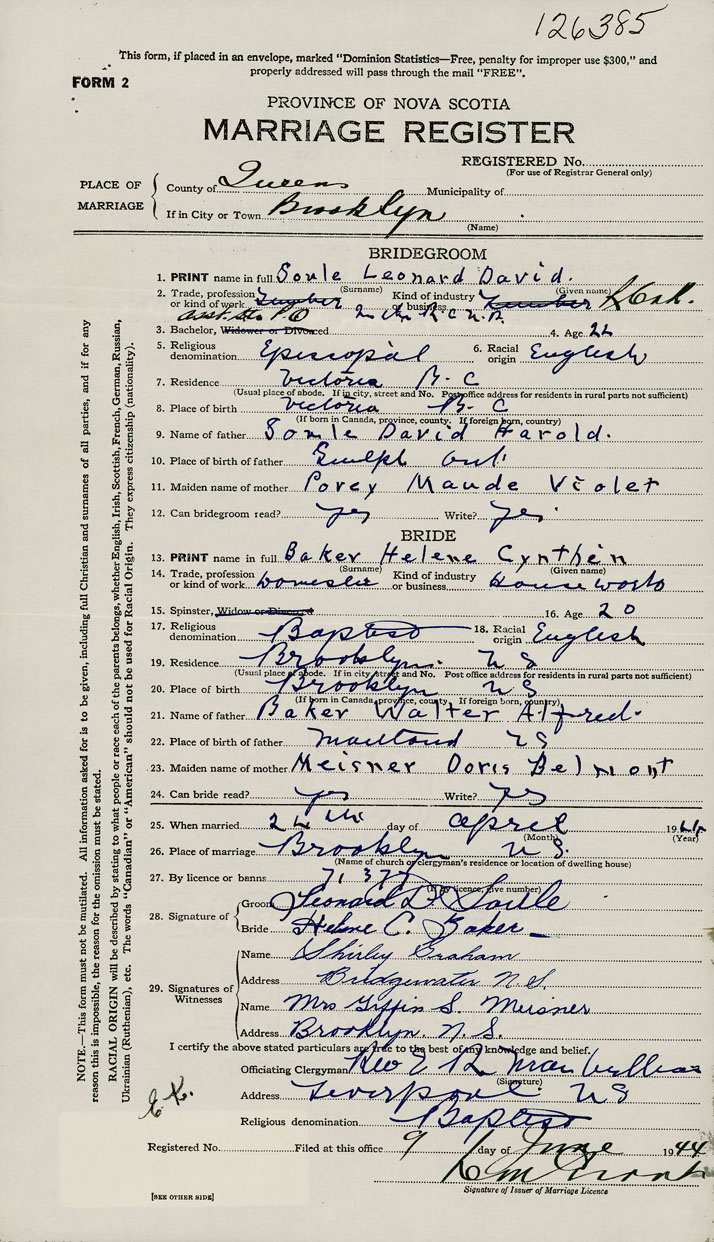 126385
This form, if placed in an envelope, marked "Dominion Statistics—Free, penalty for improper use $300," and
properly addressed will pass through the mail "FREE".
FORM 2
PROVINCE OF NOVA SCOTIA
MARRIAGE REGISTER
REGISTERED No.
(For use of Registrar General only)
PLACE OF MARRIAGE
County of Queens Municipality of
If in City or Town Brooklyn
(Name)
BRIDEGROOM
1. PRINT name in full Soule Leonard David.
(Surname) (Given name)
2. Trade, profession or kind of work Kind of industry or business
3. Bachelor, Widower or Divorced 4. Age 22
5. Religious denomination Episcopal 6. Racial origin English
7. Residence Victoria B. C
(Usual place of abode. If in city, street and No. Post office address for residents in rural parts not sufficient)
8. Place of birth Victoria B. C
(If born in Canada, province, county. If foreign born, country)
9. Name of father Soule David Harold.
10. Place of birth of father Guelph Ont.
11. Maiden name of mother Povey Maude Violet
12. Can bridegroom read? yes Write? yes.
BRIDE
13. PRINT name in full Baker Helene Cynthen
(Surname) (Given name)
14. Trade, profession or kind of work Domestic Kind of industry or business Housework
15. Spinster, Widow or Divorced 16. Age 20
17. Religious denomination Baptist 18. Racial origin English
19. Residence Brooklyn. N S
(Usual place of abode. If in city, street and No. Post office address for residents in rural parts not sufficient)
20. Place of birth Brooklyn N S
(If born in Canada, province, county. If foreign born, country)
21. Name of father Baker Walter Alfred.
22. Place of birth of father Maitland N S
23. Maiden name of mother Meisner Doris Belmont
24. Can bride read? yes Write? yes
25. When married 24 th day of April 1944
(Month) (Year)
26. Place of marriage Brooklyn N S.
(Name of church or clergyman's residence or location of dwelling house)
27. By licence or banns 71,377
(If by licence, give number)
28. Signature of
Groom Leonard D. Soule
Bride Helene C. Baker
29. Signatures of Witnesses
Name Shirley Graham
Address Bridgewater N.S.
Name Mrs Giffin S. Meisner
Address Brooklyn. N.S.
I certify the above stated particulars are true to the best of my knowledge and belief.
Officiating Clergyman Rev E R
(Signature)
Address Liverpool. N S
Religious denomination Baptist
Registered No. Filed at this office 9 day of June 1944
Signature of Issuer of Marriage Licence
[SEE OTHER SIDE]
NOTE.—This form must not be mutilated. All information asked for is to be given, including full Christian and surnames of all parties, and if for any
reason this is impossible, the reason for the omission must be stated.
RACIAL ORIGIN will be described by stating to what people or race each of the parents belongs, whether English, Irish, Scottish, French, German, Russian,
Ukrainian (Ruthenian), etc. The words "Canadian" or "American" should not be used for Racial Origin. They express citizenship (nationality).